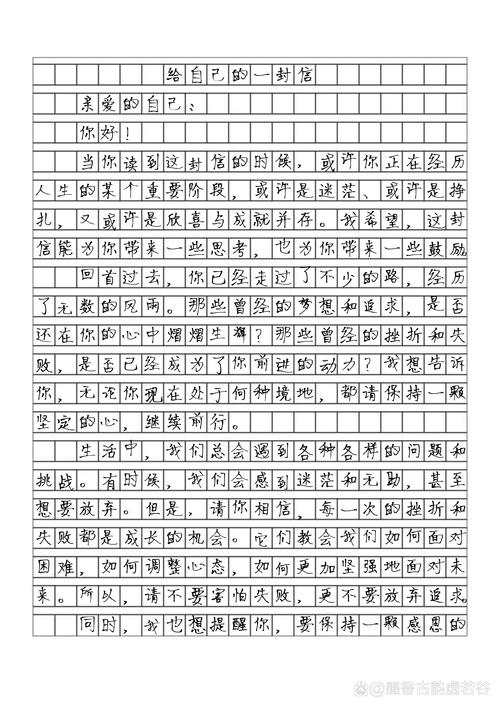 给自己的一封信
亲爱的自己：
你好！
当你读到这封信的时候，或许你正在经历
人生的某个重要阶段，或许是迷茫、或许是挣
扎，又或许是欣喜与成就并存。我希望，这封
信能为你带来一些思考，也为你带来一些鼓励
回首过去，你已经走过了不少的路，经历
了无数的风雨。那些曾经的梦想和追求，是否
还在你的心中熠熠生辉？那些曾经的挫折和失
败，是否已经成为了你前进的动力？我想告诉
你，无论你现在处于何种境地，都请保持一颗
坚定的心，继续前行。
生活中，我们总会遇到各种各样的问题和
挑战。有时候，我们会感到迷茫和无助，甚至
想要放弃。但是，请你相信，每一次的挫折和
失败都是成长的机会。它们教会我们如何面对
困难，如何调整心态，如何更加坚强地面对未
来。所以，请不要害怕失败，更不要放弃追求。
同时，我也想提醒你，要保持一颗感恩的